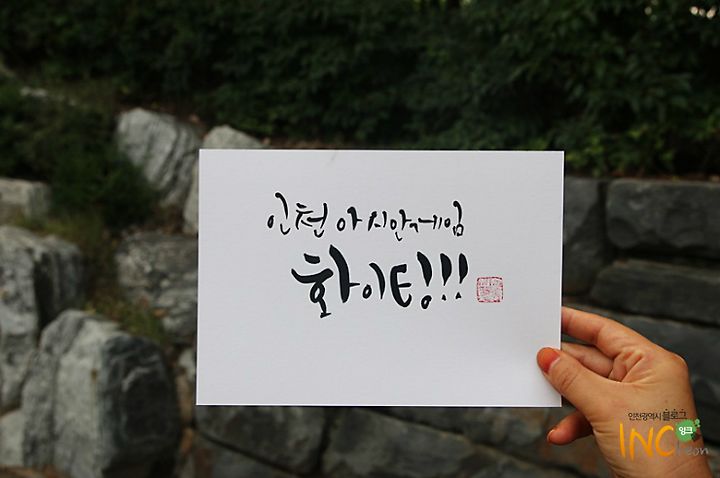 인천 아시안게임
화이팅!!!
인천광역시 블로그
잉크
INCheon